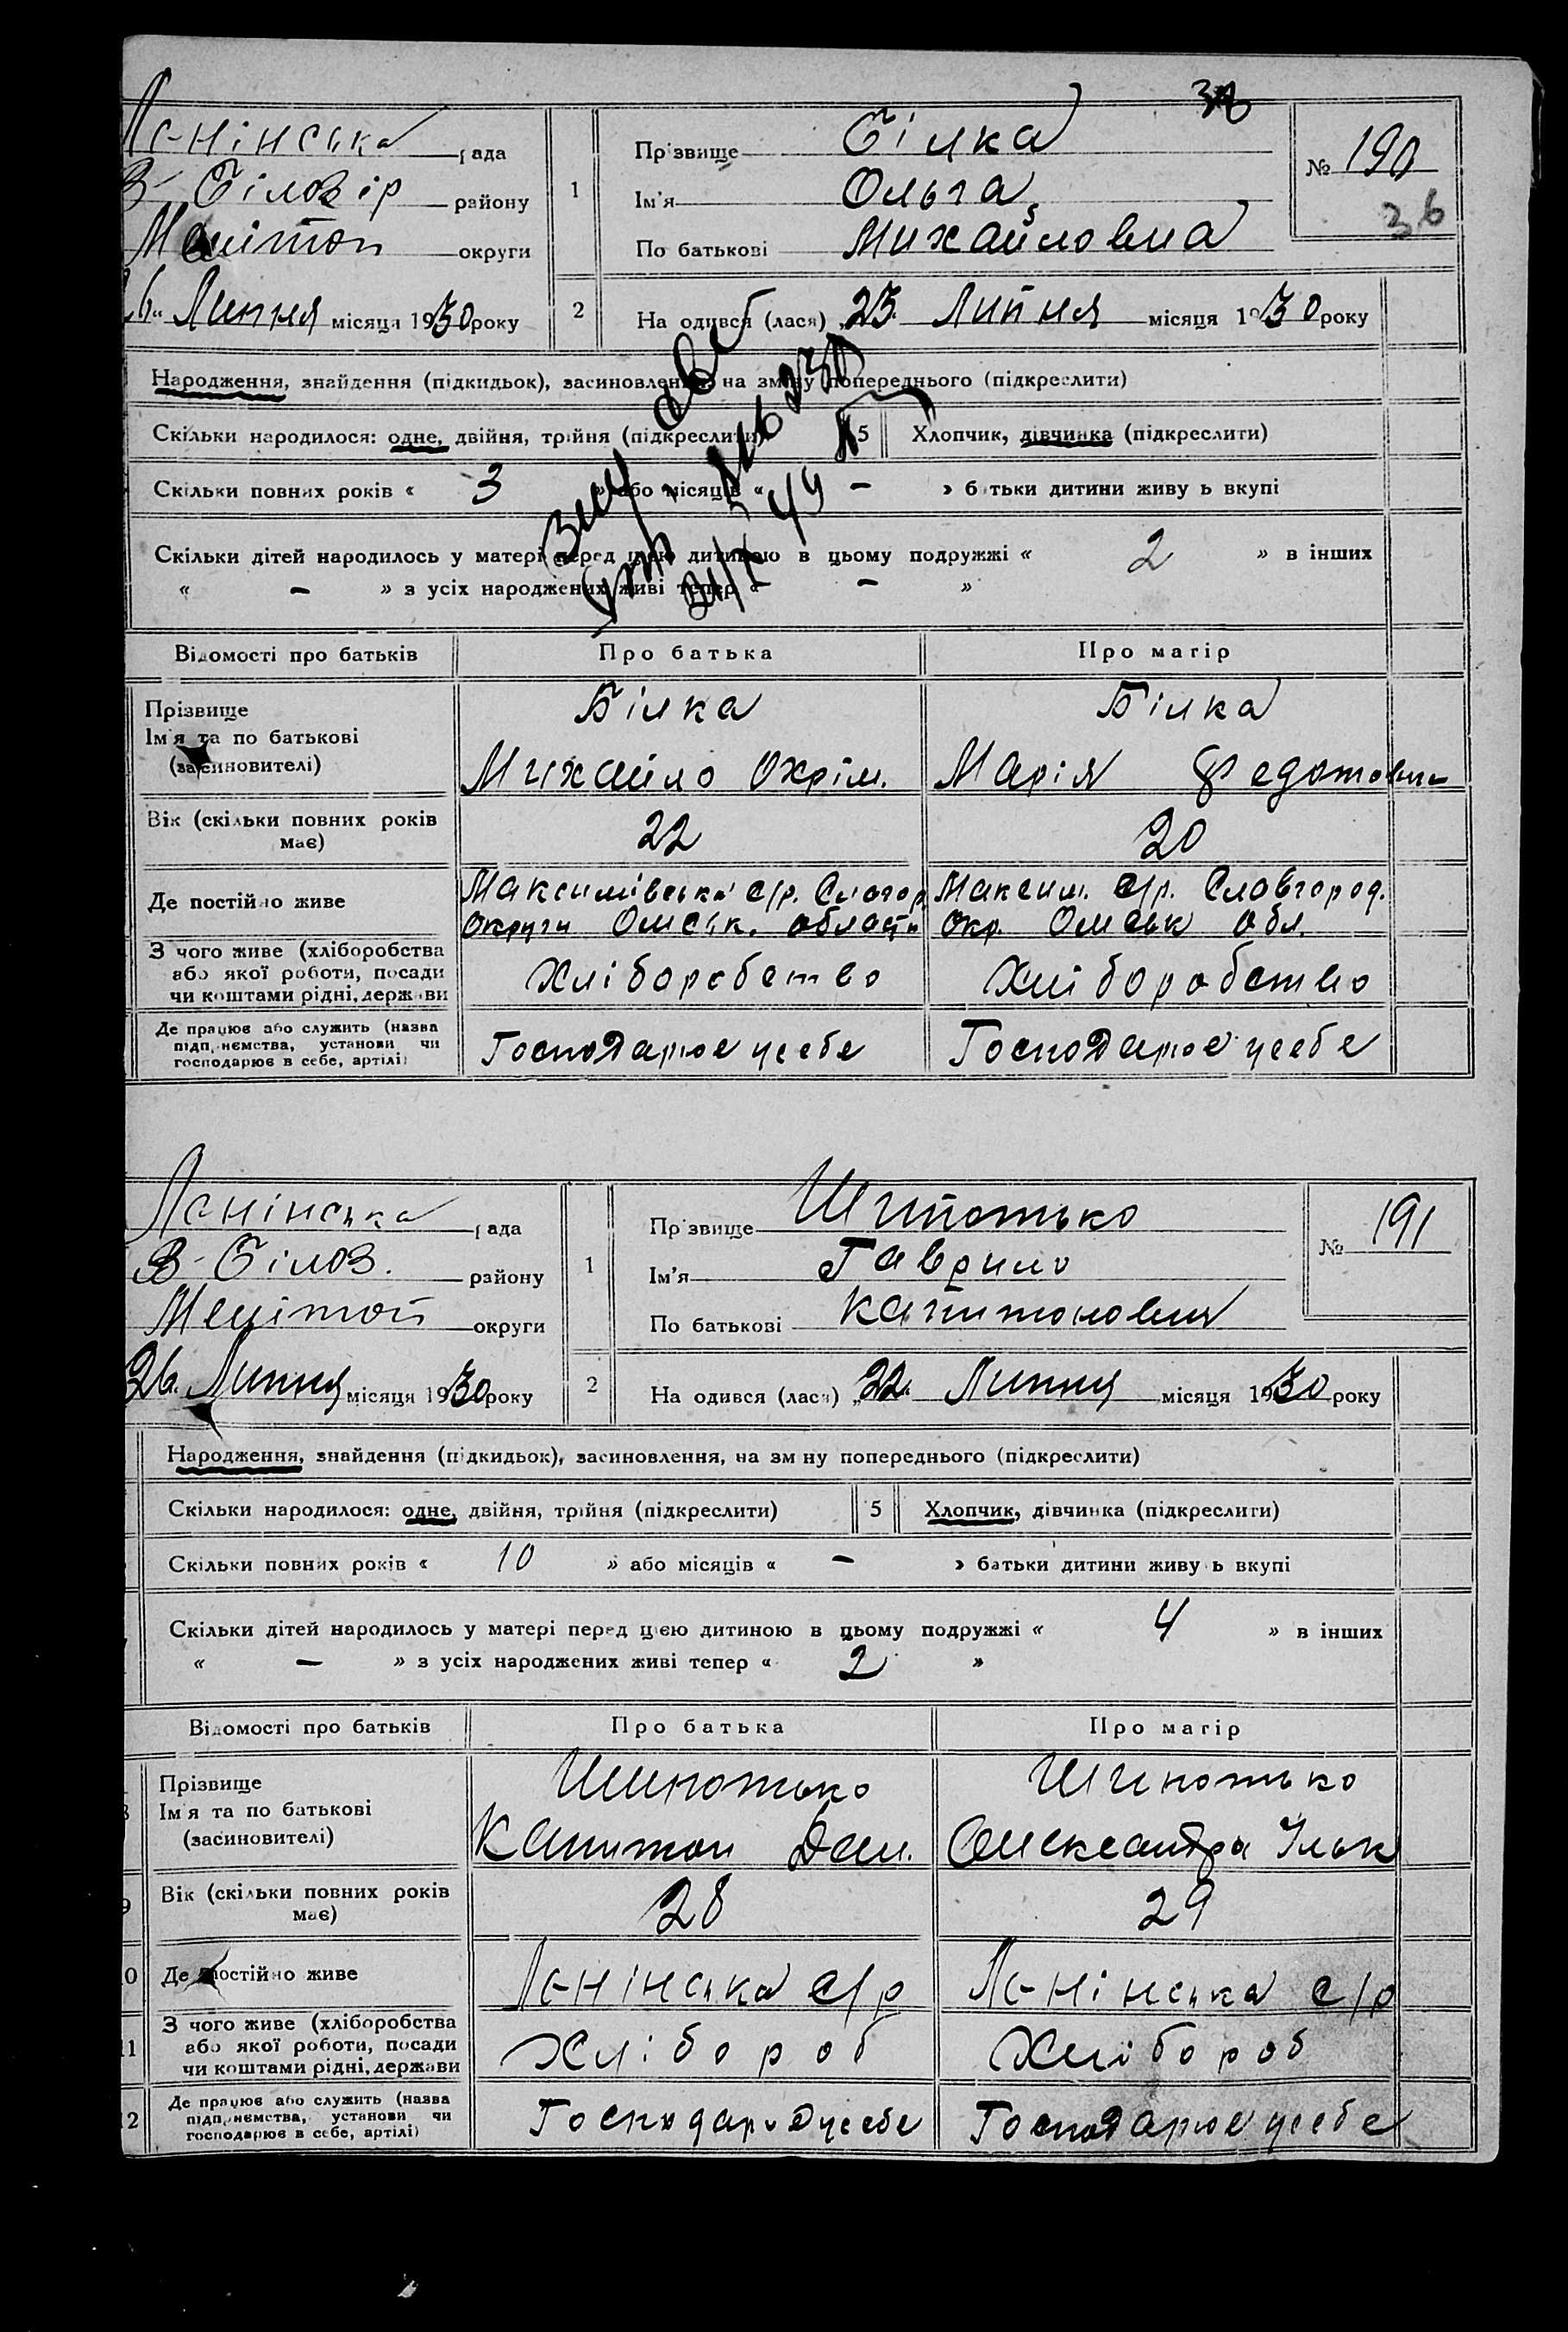 Ленінська рада
В-Білозір району
Меліtоп округи
26 „ Липня місяця 1930 року
1
Прізвище Білка
Ім'я Ольга
По батькові Михайловна
№ 190
36
2
На одився (лася) „23 Липня місяця 1930 року
Народження, знайдення (підкидьок), засиновлення, на зміну попереднього (підкреслити)
Скільки народилося: одне, двійня, трійня (підкреслити)
5 Хлопчик, дівчинка (підкреслити)
Скільки повних років « 3 » або місяців « – » батьки дитини живу ь вкупі
Скільки дітей народилось у матері перед цією дитиною в цьому подружжі « 2 » в інших
« – » з усіх народжених живі тепер « – »
Відомості про батьків Про батька Про матір
Прізвище
Ім'я та по батькові
(засиновителі)
Білка
Михайло Охрім.
Білка
Марія Федотовн
Вік (скільки повних років має) 22 20
Де постійно живе
Максимівська с/р. Славгор
Округи Омськ. области
Максим. с/р. Славгород.
Окр Омськ обл.
З чого живе (хліборобства
або якої роботи, посади
чи коштами рідні, держави
Хліборобство Хліборобство
Де працює або служить (назва
підприємства, установи чи
господарює в себе, артілі)
Господарює усебе Господарює усебе
Ленінська рада
В-Білоз. району
Меліtоп округи
26. Липня місяця 1930 року
1
Прізвище Шипотько
Ім'я Гаврило
По батькові Капитонович
№ 191
2
На одився (лася) „22. Липня місяця 1930 року
Народження, знайдення (підкидьок), засиновлення, на зм ну попереднього (підкреслити)
Скільки народилося: одне, двійня, трійня (підкреслити)
5 Хлопчик, дівчинка (підкреслити)
Скільки повних років « 10 » або місяців « – » батьки дитини живу ь вкупі
Скільки дітей народилось у матері перед цією дитиною в цьому подружжі « 4 » в інших
« – » з усіх народжених живі тепер « 2 »
Відомості про батьків Про батька Про матір
Прізвище
Ім'я та по батькові
(засиновителі)
Шипотько
Капитон Дан.
Шипотько
Олександра Ільк
Вік (скільки повних років має) 28 29
10 Де постійно живе Ленінська с/р Ленінська с/р
11 З чого живе (хліборобства
або якої роботи, посади
чи коштами рідні, держави
Хлібороб Хлібороб
12 Де працює або служить (назва
підприємства, установи чи
господарює в себе, артілі)
Господарює усебе Господарює усебе